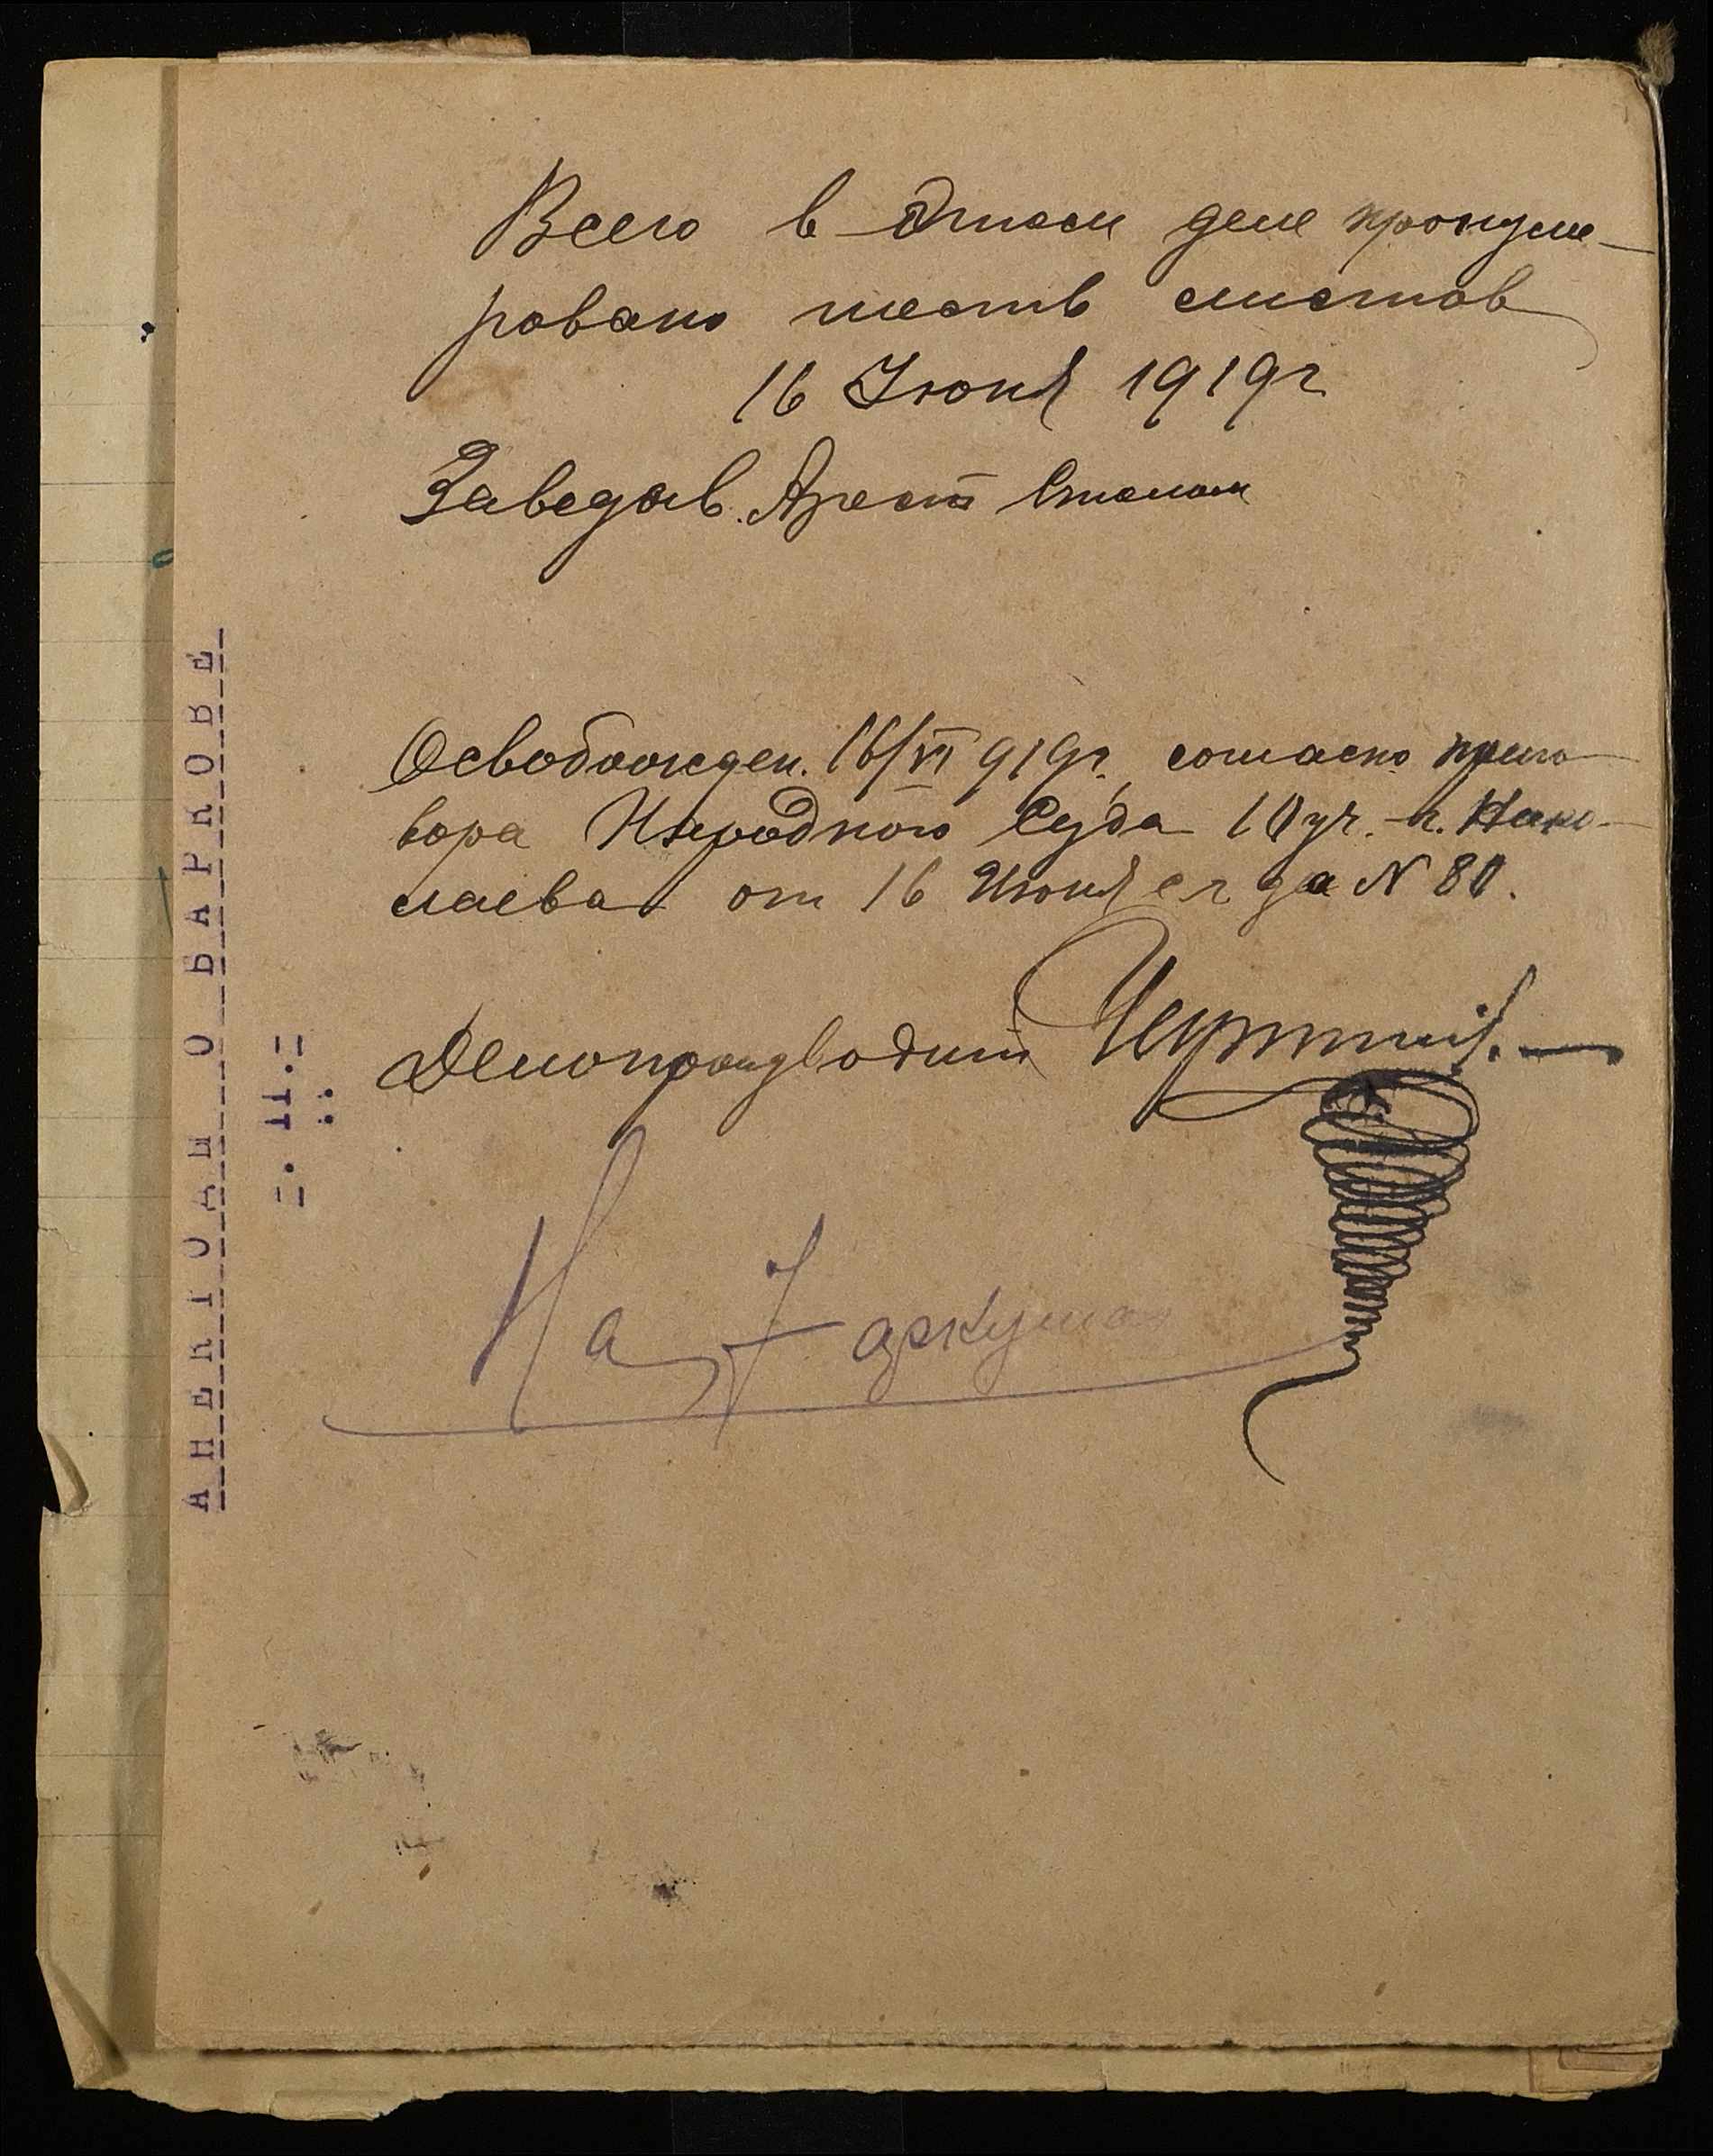 Всего в этом деле пронуме-
ровано шесть листов
16 Июня 1919 г
Заведов. Арест Столом
Освобожден. 16/VI 919 г., согласно приго-
вора Народного Суда 10 уч. г. Нико-
лаева от 16 Июня с г за N 80.
Делопроизводит
На 7 аркушах